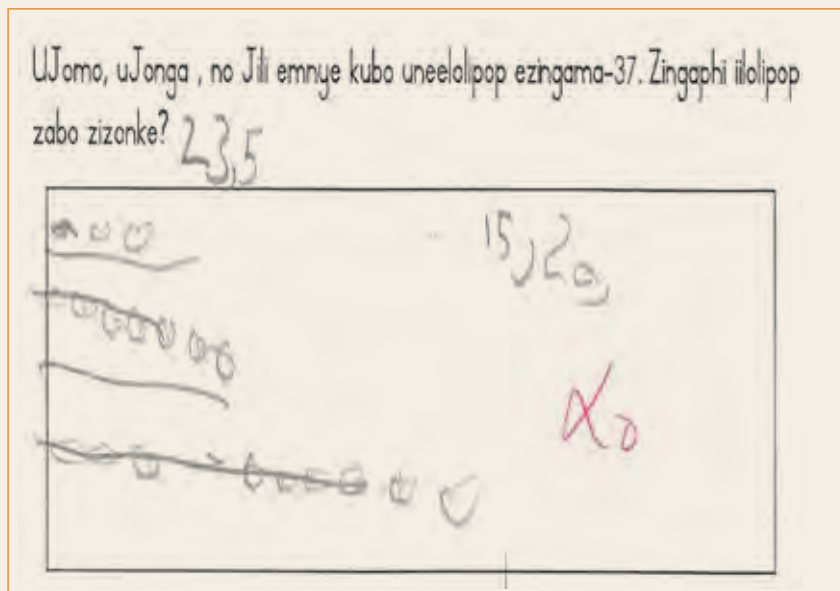 UJomo, uJonga , no Jili emnye kubo uneelolipop ezingama-37. Zingaphi iilolipop
zabo zizonke? 23,5
15, 20,